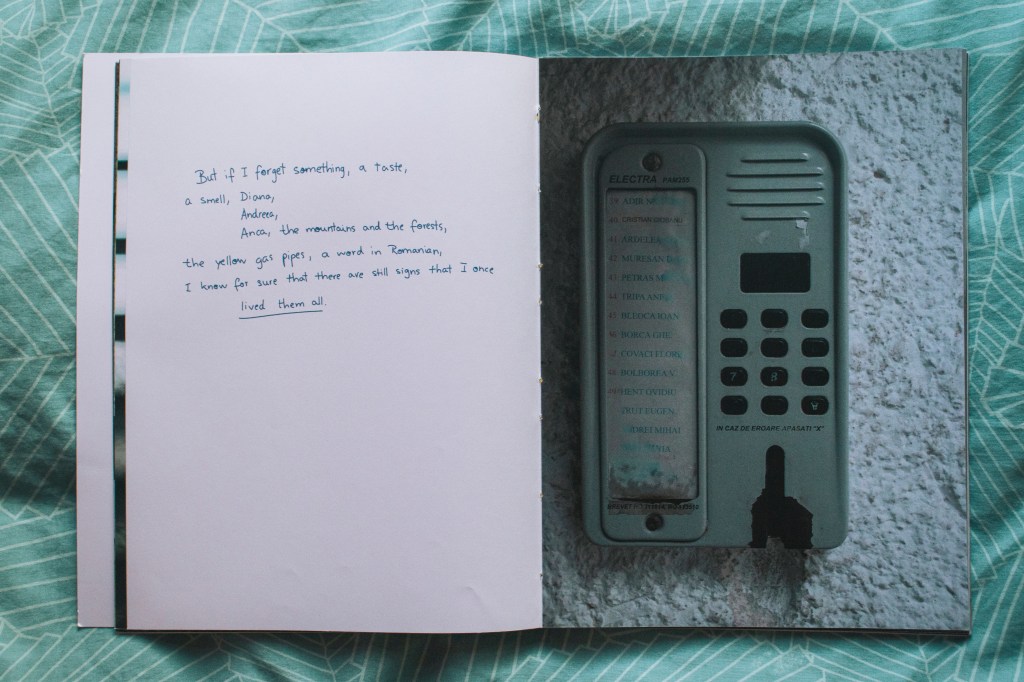 But if I forget something, a taste,
a smell, Diana,
Andreea,
Anca, the mountains and the forests,
the yellow gas pipes, a word in Romanian,
I know for sure that there are still signs that I once
lived them all.
ELECTRA
39
40 CRISTIAN
41
42 MURESAN
43 PETRAS
44 TRIPA
45 BLEOCA IOAN
46 BORCA GHE.
47 COVACI FLORI
48 BOLBOREA V.
49 HENT OVIDIU
TRUT EUGEN
MIHAI
7 8
IN CAZ DE EROARE APASATI "X"